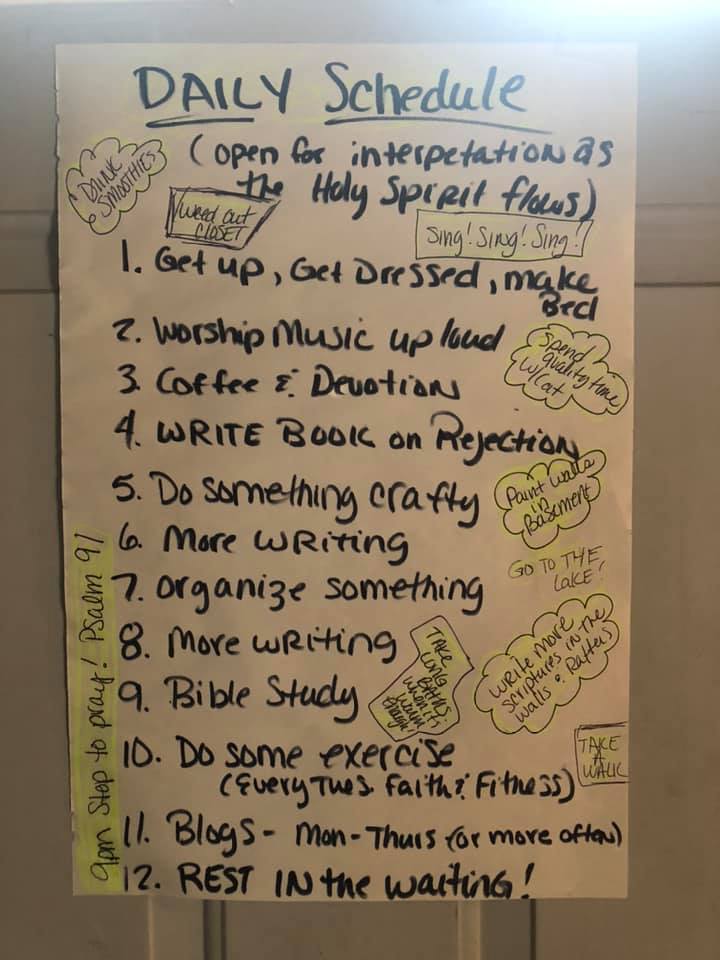 DAILY Schedule
(open for interpetation as
the Holy Spirit flows)
DRINK
SMOOTHIES
Weed out
CLOSET
Sing! Sing! Sing!
1. Get up, Get Dressed, make
Bed
2. Worship Music up loud
3. Coffee & Devotion
Spend
quality time
w/Cat
4. WRITE BOOK on Rejection
5. Do something crafty
Paint walls
in
Basement
6. More WRiting
GO TO THE
LAKE!
7. Organize something
8. More WRiting
TAKE
LONG
BATHS
when it's
warm
enough!
write more
scriptures in the
walls & Rafters
9. Bible Study
10. Do some exercise
(Every Tues. Faith & Fitness)
TAKE
A
WALK
11. Blogs - Mon-Thurs (or more often)
12. REST IN the waiting!
9pm Stop to pray! Psalm 91